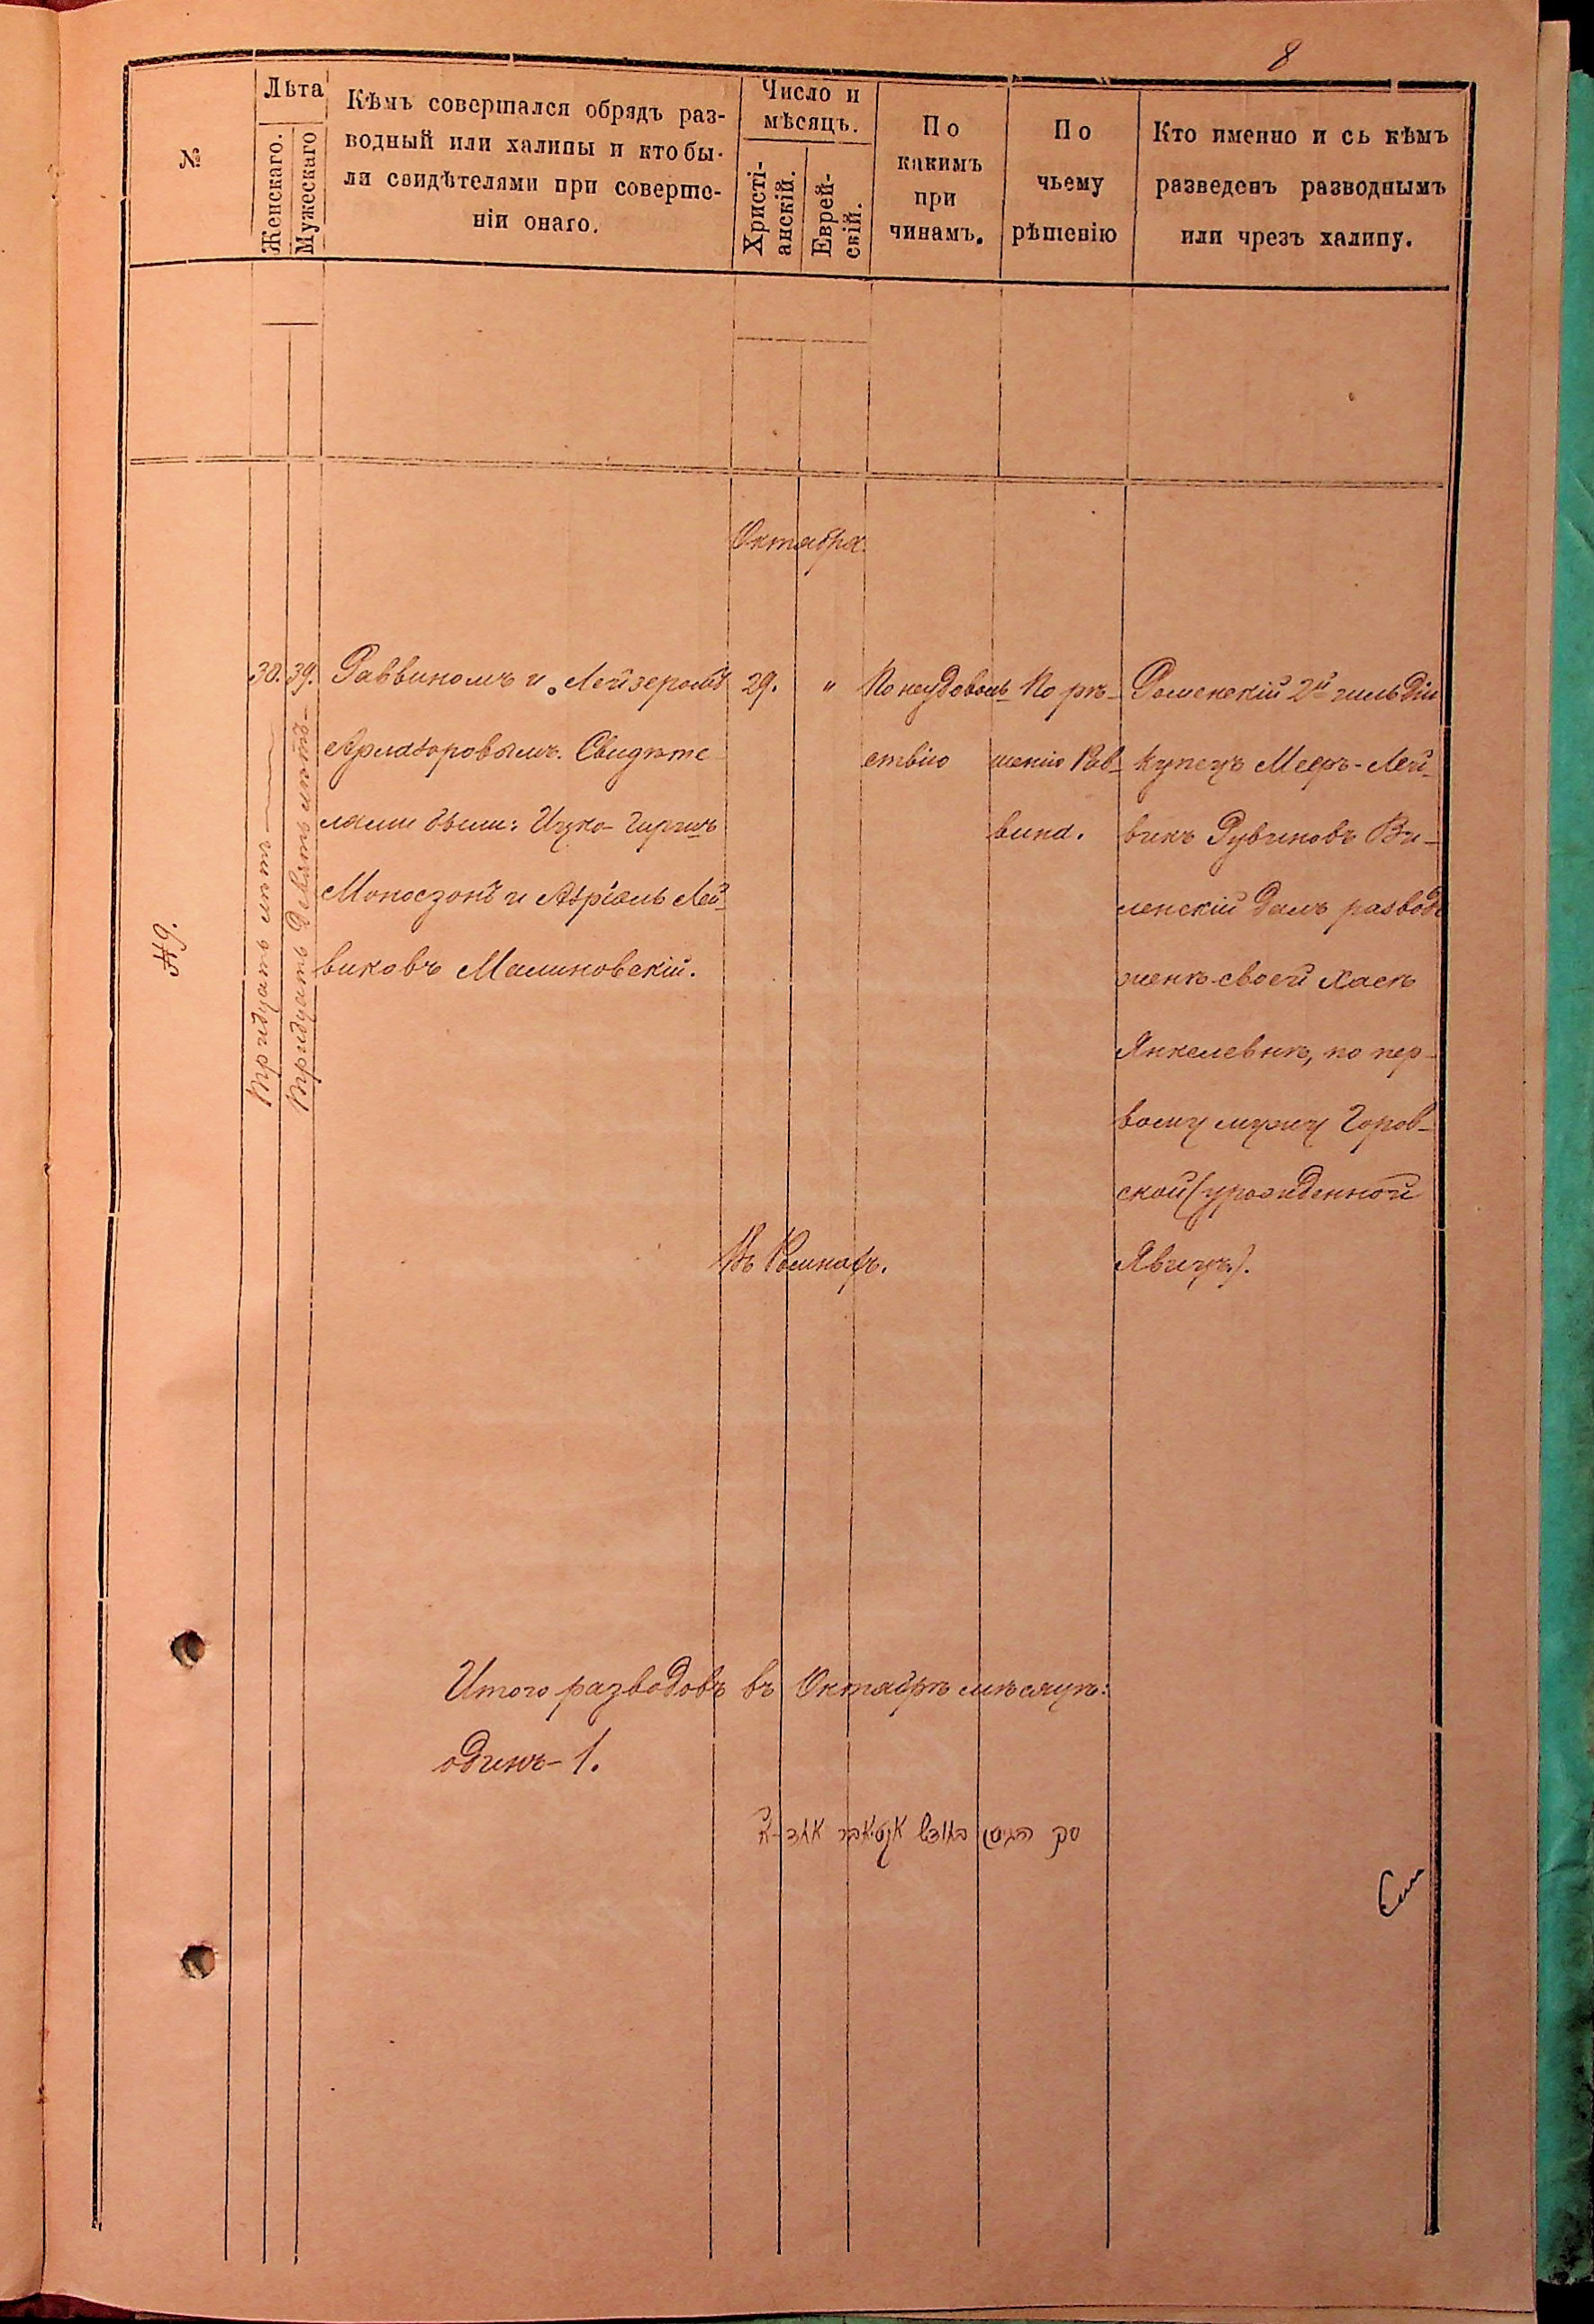 8
№
Лѣта
Женскаго.
Мужескаго
Кѣмъ совершался обрядъ раз-
водный или халицы и кто бы-
ли свидѣтелями при соверше-
ніи онаго.
Число и
мѣсяцъ.
Христі-
анскій.
Еврей-
скій.
По
какимъ
при
чинамъ.
По
чьему
рѣшенію
Кто именно и съ кѣмъ
разведенъ разводнымъ
или чрезъ халицу.
Октября.
№9.
30.
Тридцать лѣтъ
39.
Тридцать девять лѣтъ
Раввиномъ и Лейзеромъ
Свидѣте-
лями были: Ицко-Гиршъ
Моносзонъ и Абріамъ Лей-
виковъ Малиновскій.
29.
"
По неудоволь-
ствію
По рѣ-
шенію Рав-
вина.
Роменскій 2й гильдіи
купецъ Мееръ-Лей-
викъ Рувиновъ Ви-
ленскій далъ разводъ
женѣ своей Хаѣ
Янкелевнѣ, по пер-
вому мужу Горов-
ской (урожденной
Явицъ).
Въ Ромнахъ.
Итого разводовъ въ Октябрѣ мѣсяцѣ:
одинъ-1.
סך הגיטין בחודש אקטיאבר אחד-א'